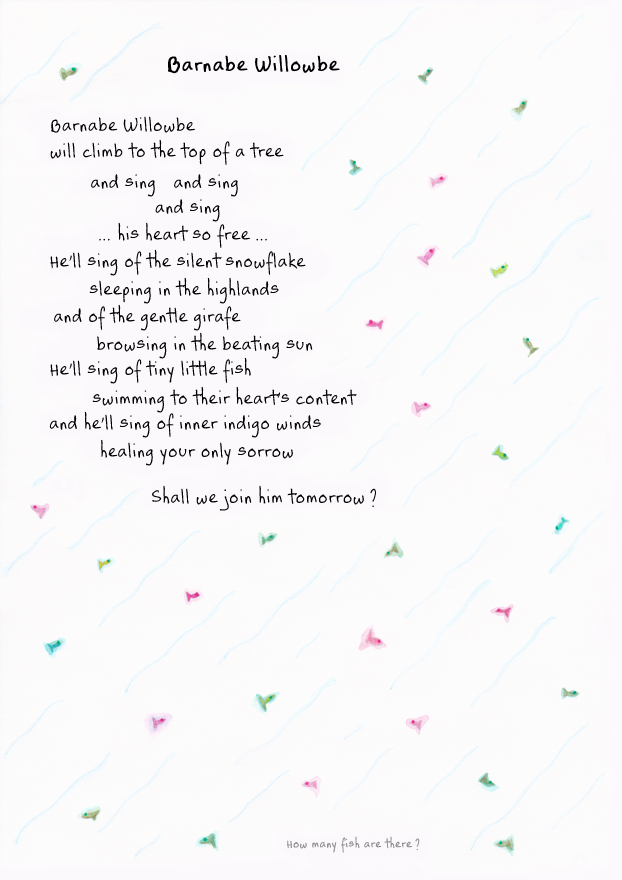 Barnabe Willowbe
Barnabe Willowbe
will climb to the top of a tree
and sing and sing
and sing
... his heart so free ...
He'll sing of the silent snowflake
sleeping in the highlands
and of the gentle girafe
browsing in the beating sun
He'll sing of tiny little fish
swimming to their heart's content
and he'll sing of inner indigo winds
healing your only sorrow
Shall we join him tomorrow ?
How many fish are there ?